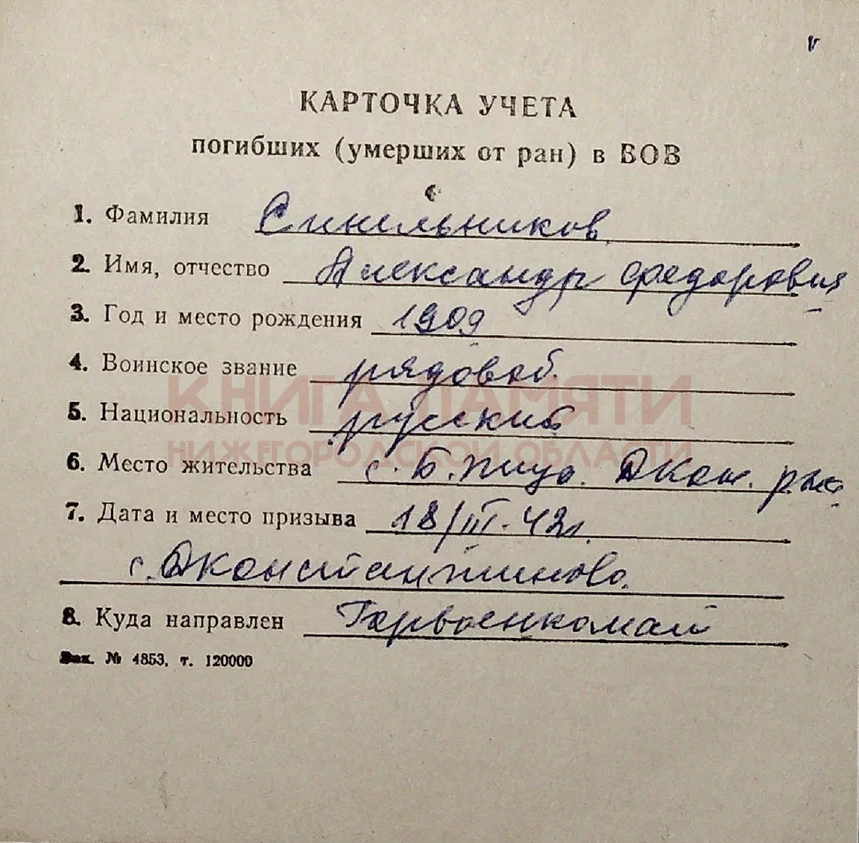 v
КАРТОЧКА УЧЕТА
погибших (умерших от ран) в ВОВ
1. Фамилия Синельников
2. Имя, отчество Александр Федорович
3. Год и место рождения 1909
4. Воинское звание рядовой.
КНИГА ПАМЯТИ
5. Национальность русский
НИЖЕГОРОДСКОЙ ОБЛАСТИ
6. Место жительства с. Б. Пица. Дкон. р-на
7. Дата и место призыва 18/III-42г.
с. Дконстантиново.
8. Куда направлен Горвоенкомат
Зак. № 4853, т. 120000